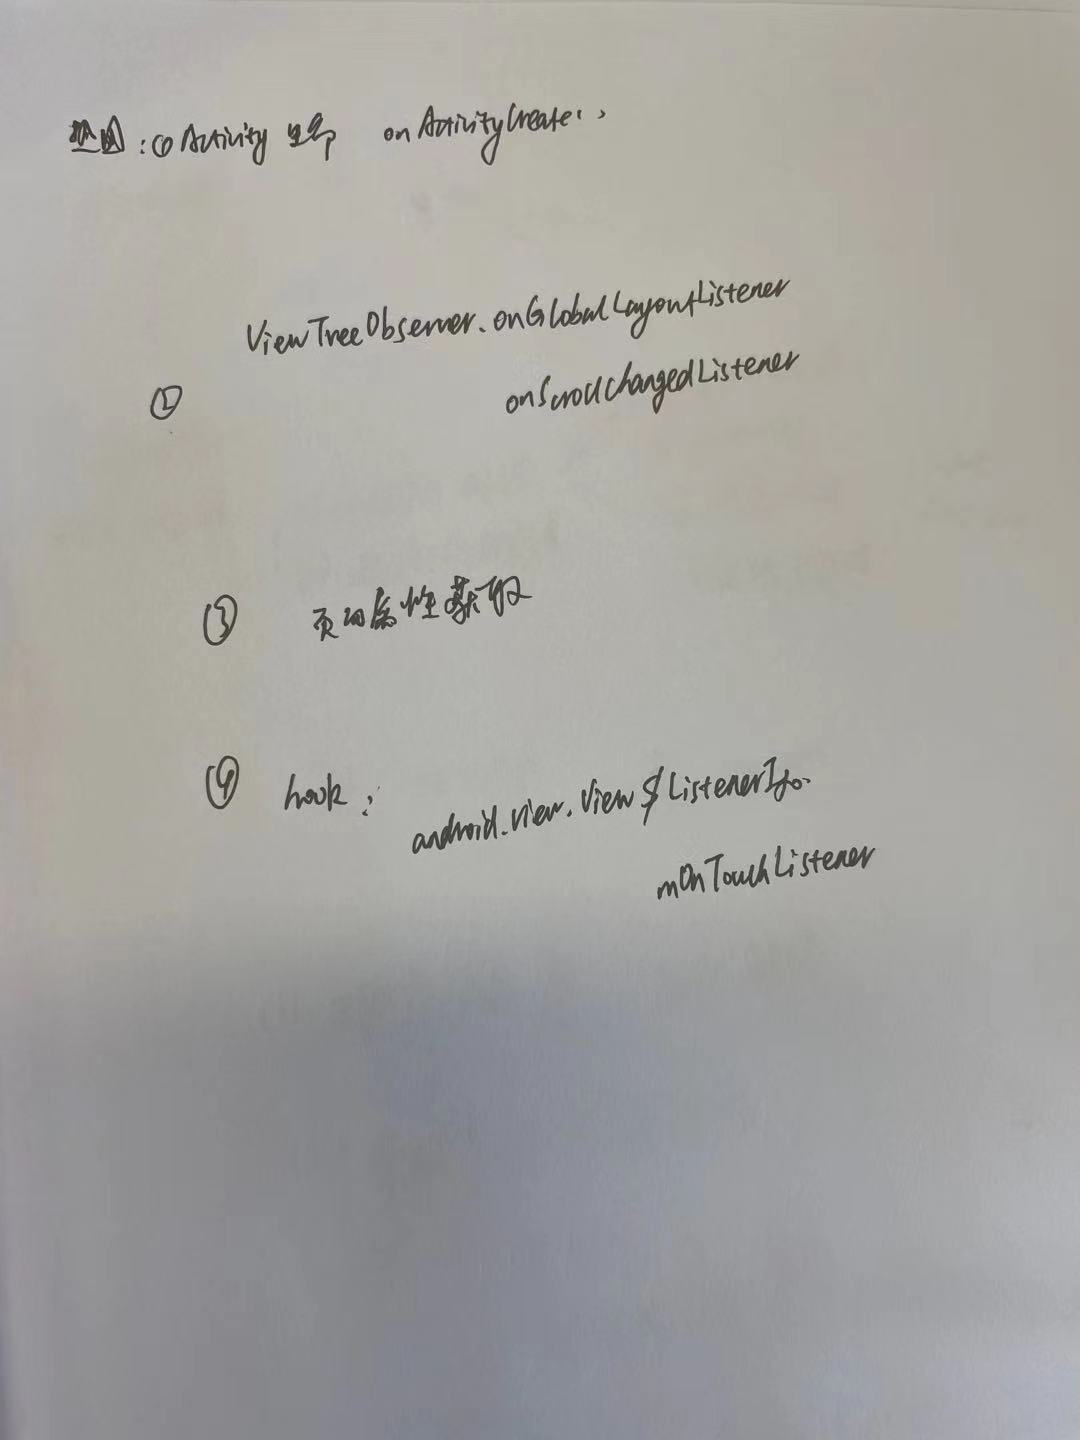 热图:① Activity 生命 onActivityCreate...
ViewTreeObserver.onGlobalLayoutListener
② onScrollchangedListener
③ 页面属性获取
④ hook: android.view.View$ListenerInfo.
mOnTouchListener